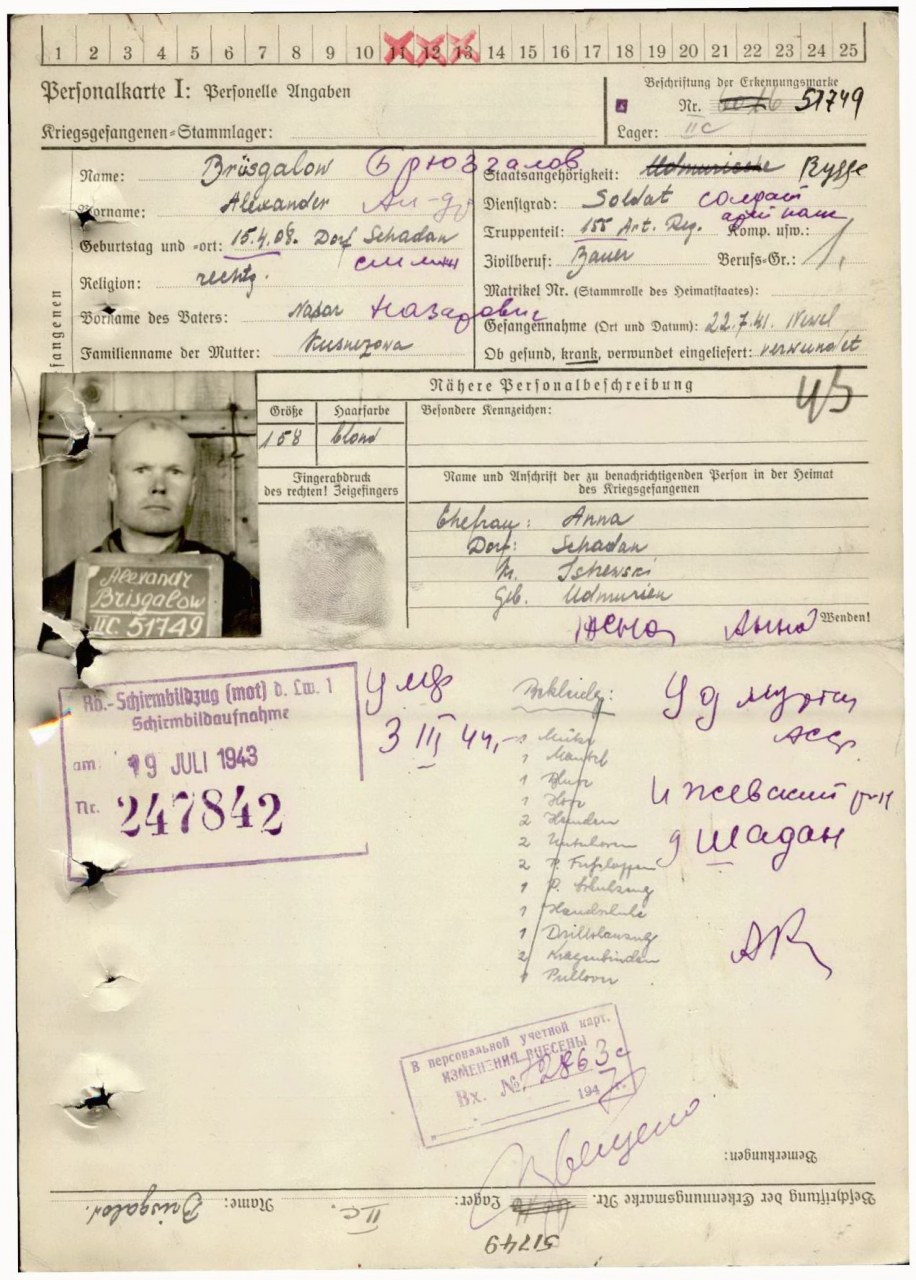 1 2 3 4 5 6 7 8 9 10 11 12 13 14 15 16 17 18 19 20 21 22 23 24 25
Personalkarte I: Personelle Angaben
Beschriftung der Erkennungsmarke
Nr. 51749
Kriegsgefangenen-Stammlager:
Lager: II C
fangenen
Name: Brüsgalow Брюзгалов
Vorname: Alexander Ал-др
Geburtstag und -ort: 15.4.08. Dorf Schadan
Religion: rechtg.
Vorname des Vaters: Nasar Назарович
Familienname der Mutter: Kusnezowa
Staatsangehörigkeit: Russe
Dienstgrad: Soldat солдат
Truppenteil: 155 Art. Reg. Komp. usw.:
Zivilberuf: Bauer Berufs-Gr.: 1.
Matrikel Nr. (Stammrolle des Heimatstaates):
Gefangennahme (Ort und Datum): 22.7.41. Newel
Ob gesund, krank, verwundet eingeliefert: verwundet
Nähere Personalbeschreibung
Größe Haarfarbe Besondere Kennzeichen:
158 blond
Fingerabdruck
des rechten! Zeigefingers
Name und Anschrift der zu benachrichtigenden Person in der Heimat
des Kriegsgefangenen
Ehefrau: Anna
Dorf: Schadan
Kr. Ischewski
Geb. Udmurien
Жена Анна
Wenden!
Alexandr
Brisgalow
IIC. 51749
Rö.-Schirmbildzug (mot) d. Lw. 1
Schirmbildaufnahme
am: 19 JULI 1943
Nr. 247842
3 III 44,
Удмуртск
АССР
Ижевский р-н
д Шадан
1 Mütze
1 Mantel
1 Bluse
1 Hose
2 Hemden
2 Unterhosen
2 P. Fußlappen
1 P. Schuhzeug
1 Handschuhe
1 Drillichanzug
2 Kragenbinden
1 Pullover
В персональной учетной карт.
ИЗМЕНЕНИЯ ВНЕСЕНЫ
Вх. № 72863с
194 г.
Извещено
Bemerkungen:
Beschriftung der Erkennungsmarke Nr. 51749
Lager: II C.
Name: Brisgalow.